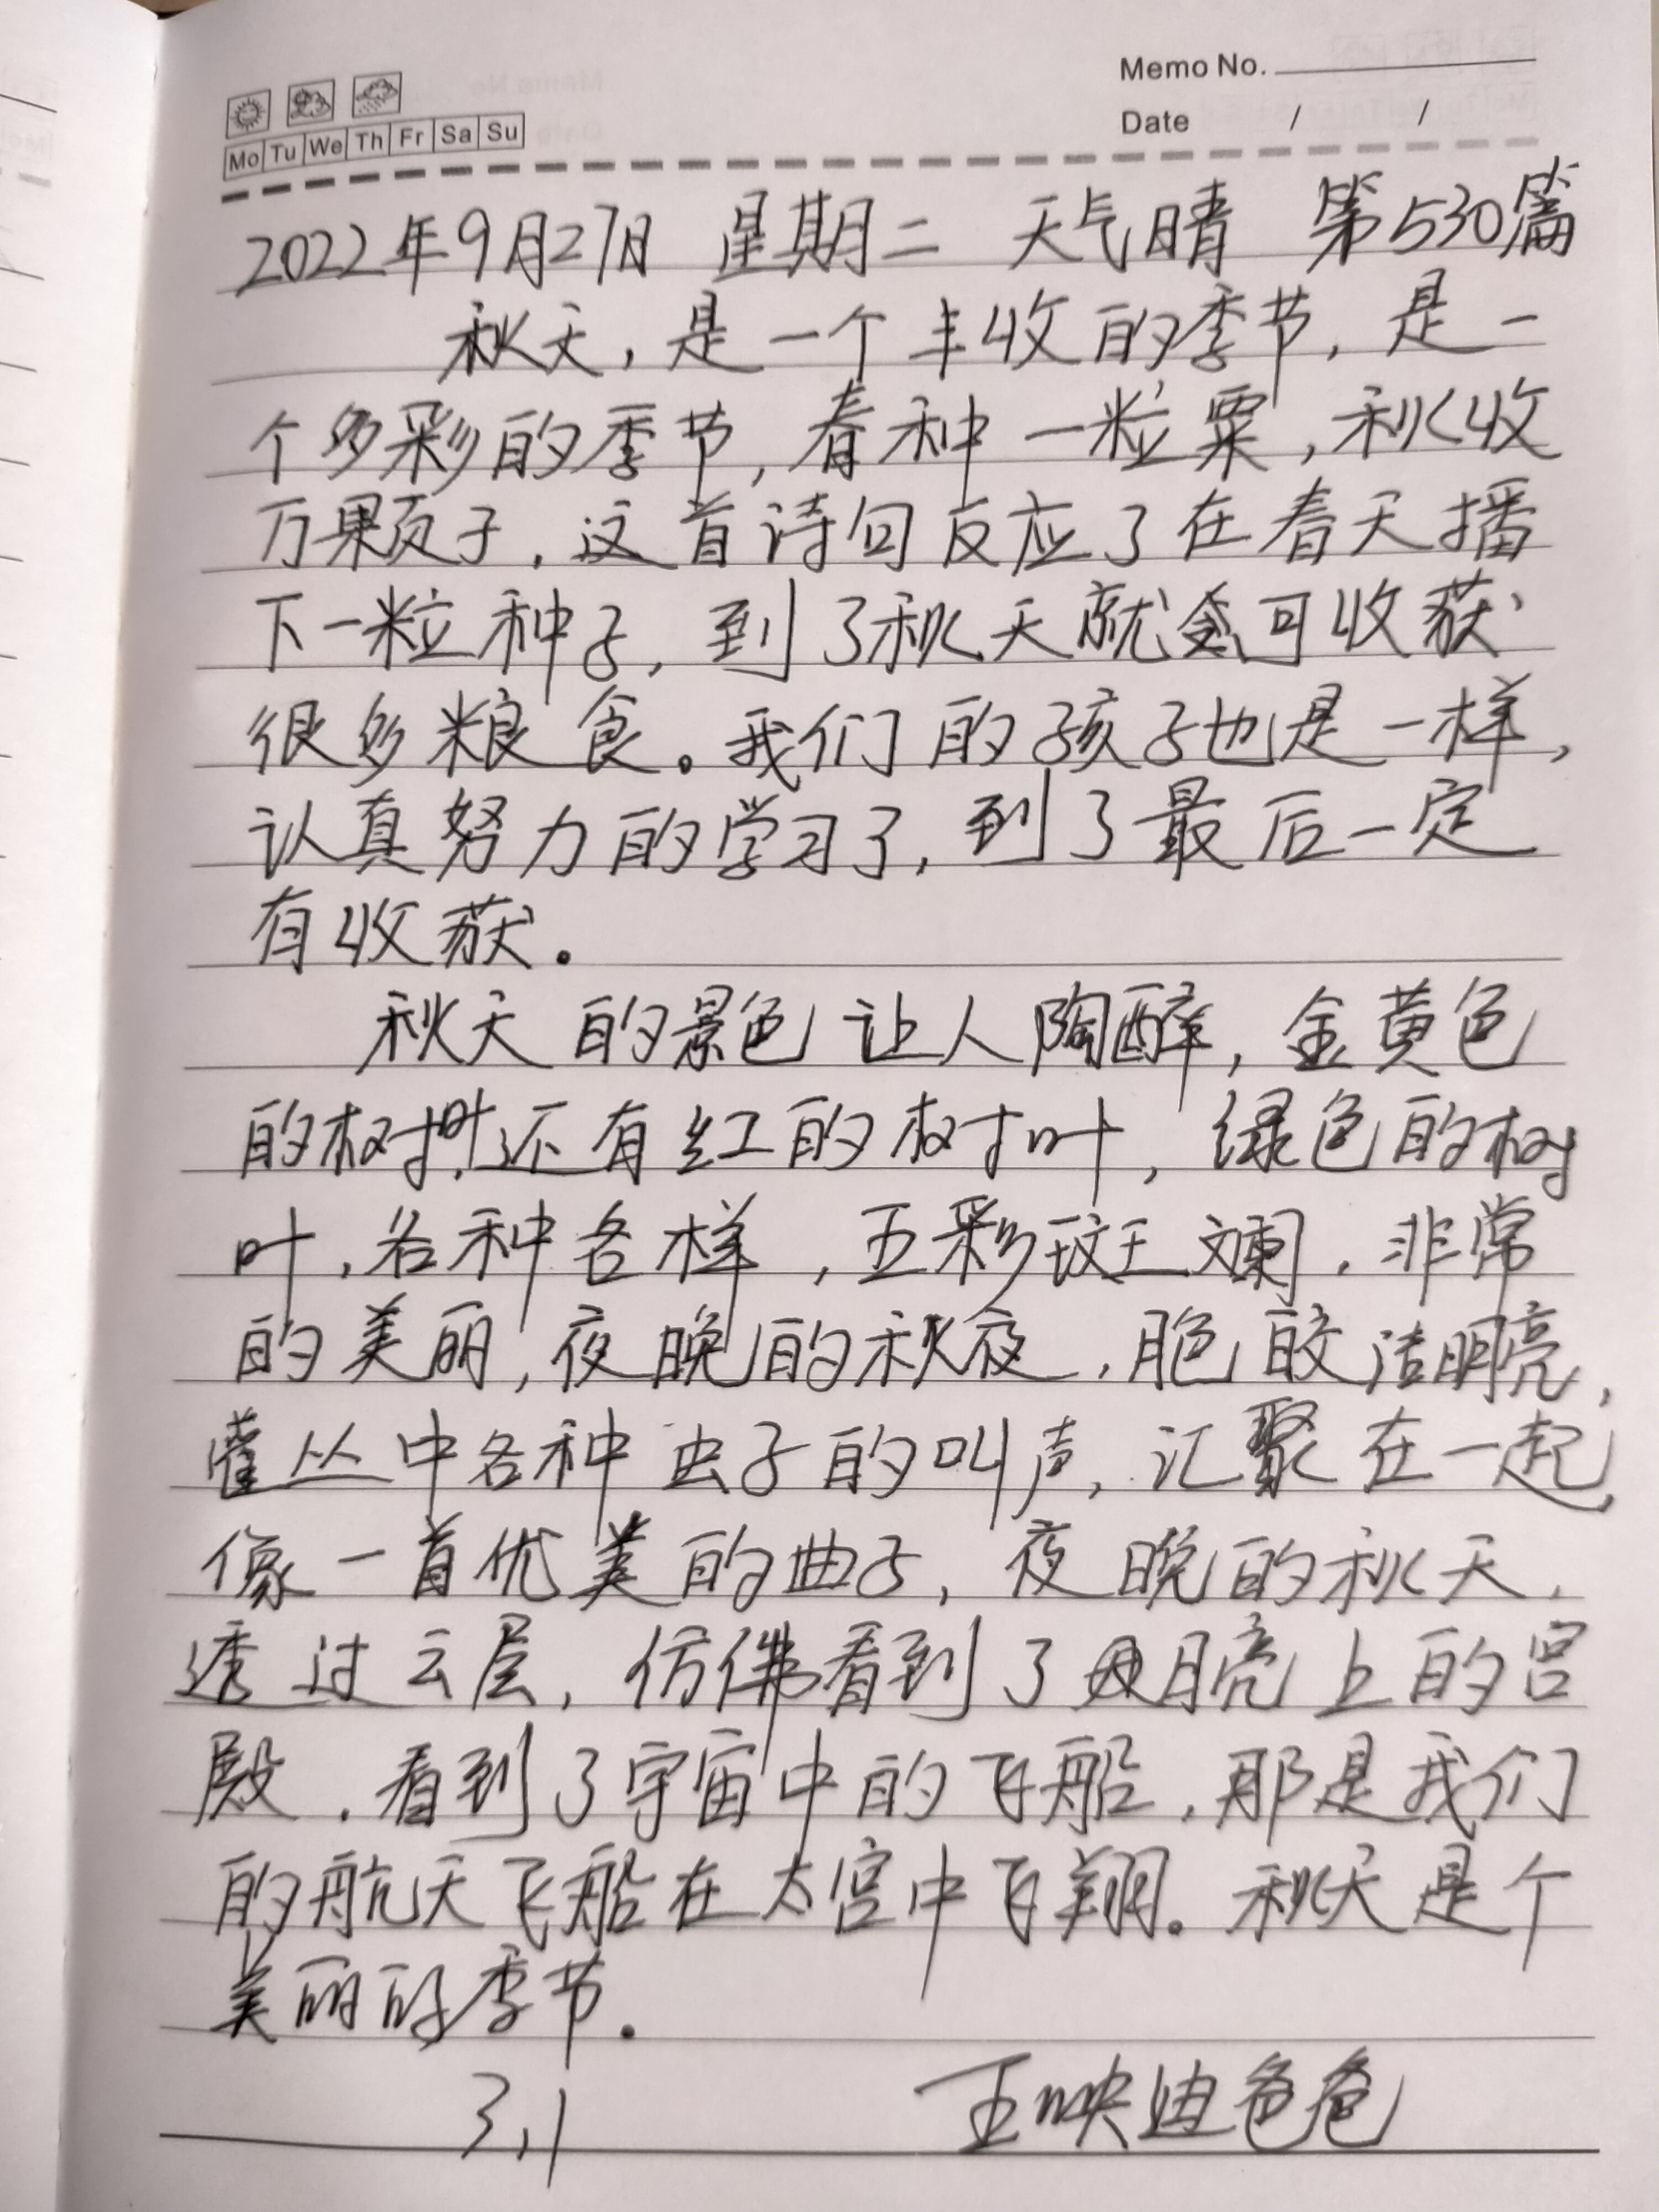 Memo No.
Mo Tu We Th Fr Sa Su
Date / /
2022年9月27日 星期二 天气晴 第530篇
秋天，是一个丰收的季节，是一
个多彩的季节，春种一粒粟，秋收
万果颗子，这首诗句反应了在春天播
下一粒种子，到了秋天就会可收获
很多粮食。我们的孩子也是一样，
认真努力的学习了，到了最后一定
有收获。
秋天的景色让人陶醉，金黄色
的树叶，还有红的树叶，绿色的树
叶，各种各样，五彩斑斓，非常
的美丽，夜晚的秋夜，月色皎洁明亮，
灌丛中各种虫子的叫声，汇聚在一起，
像一首优美的曲子，夜晚的秋天，
透过云层，仿佛看到了月亮上的宫
殿，看到了宇宙中的飞船，那是我们
的航天飞船在太宫中飞翔。秋天是个
美丽的季节。
3,1 王映迪爸爸